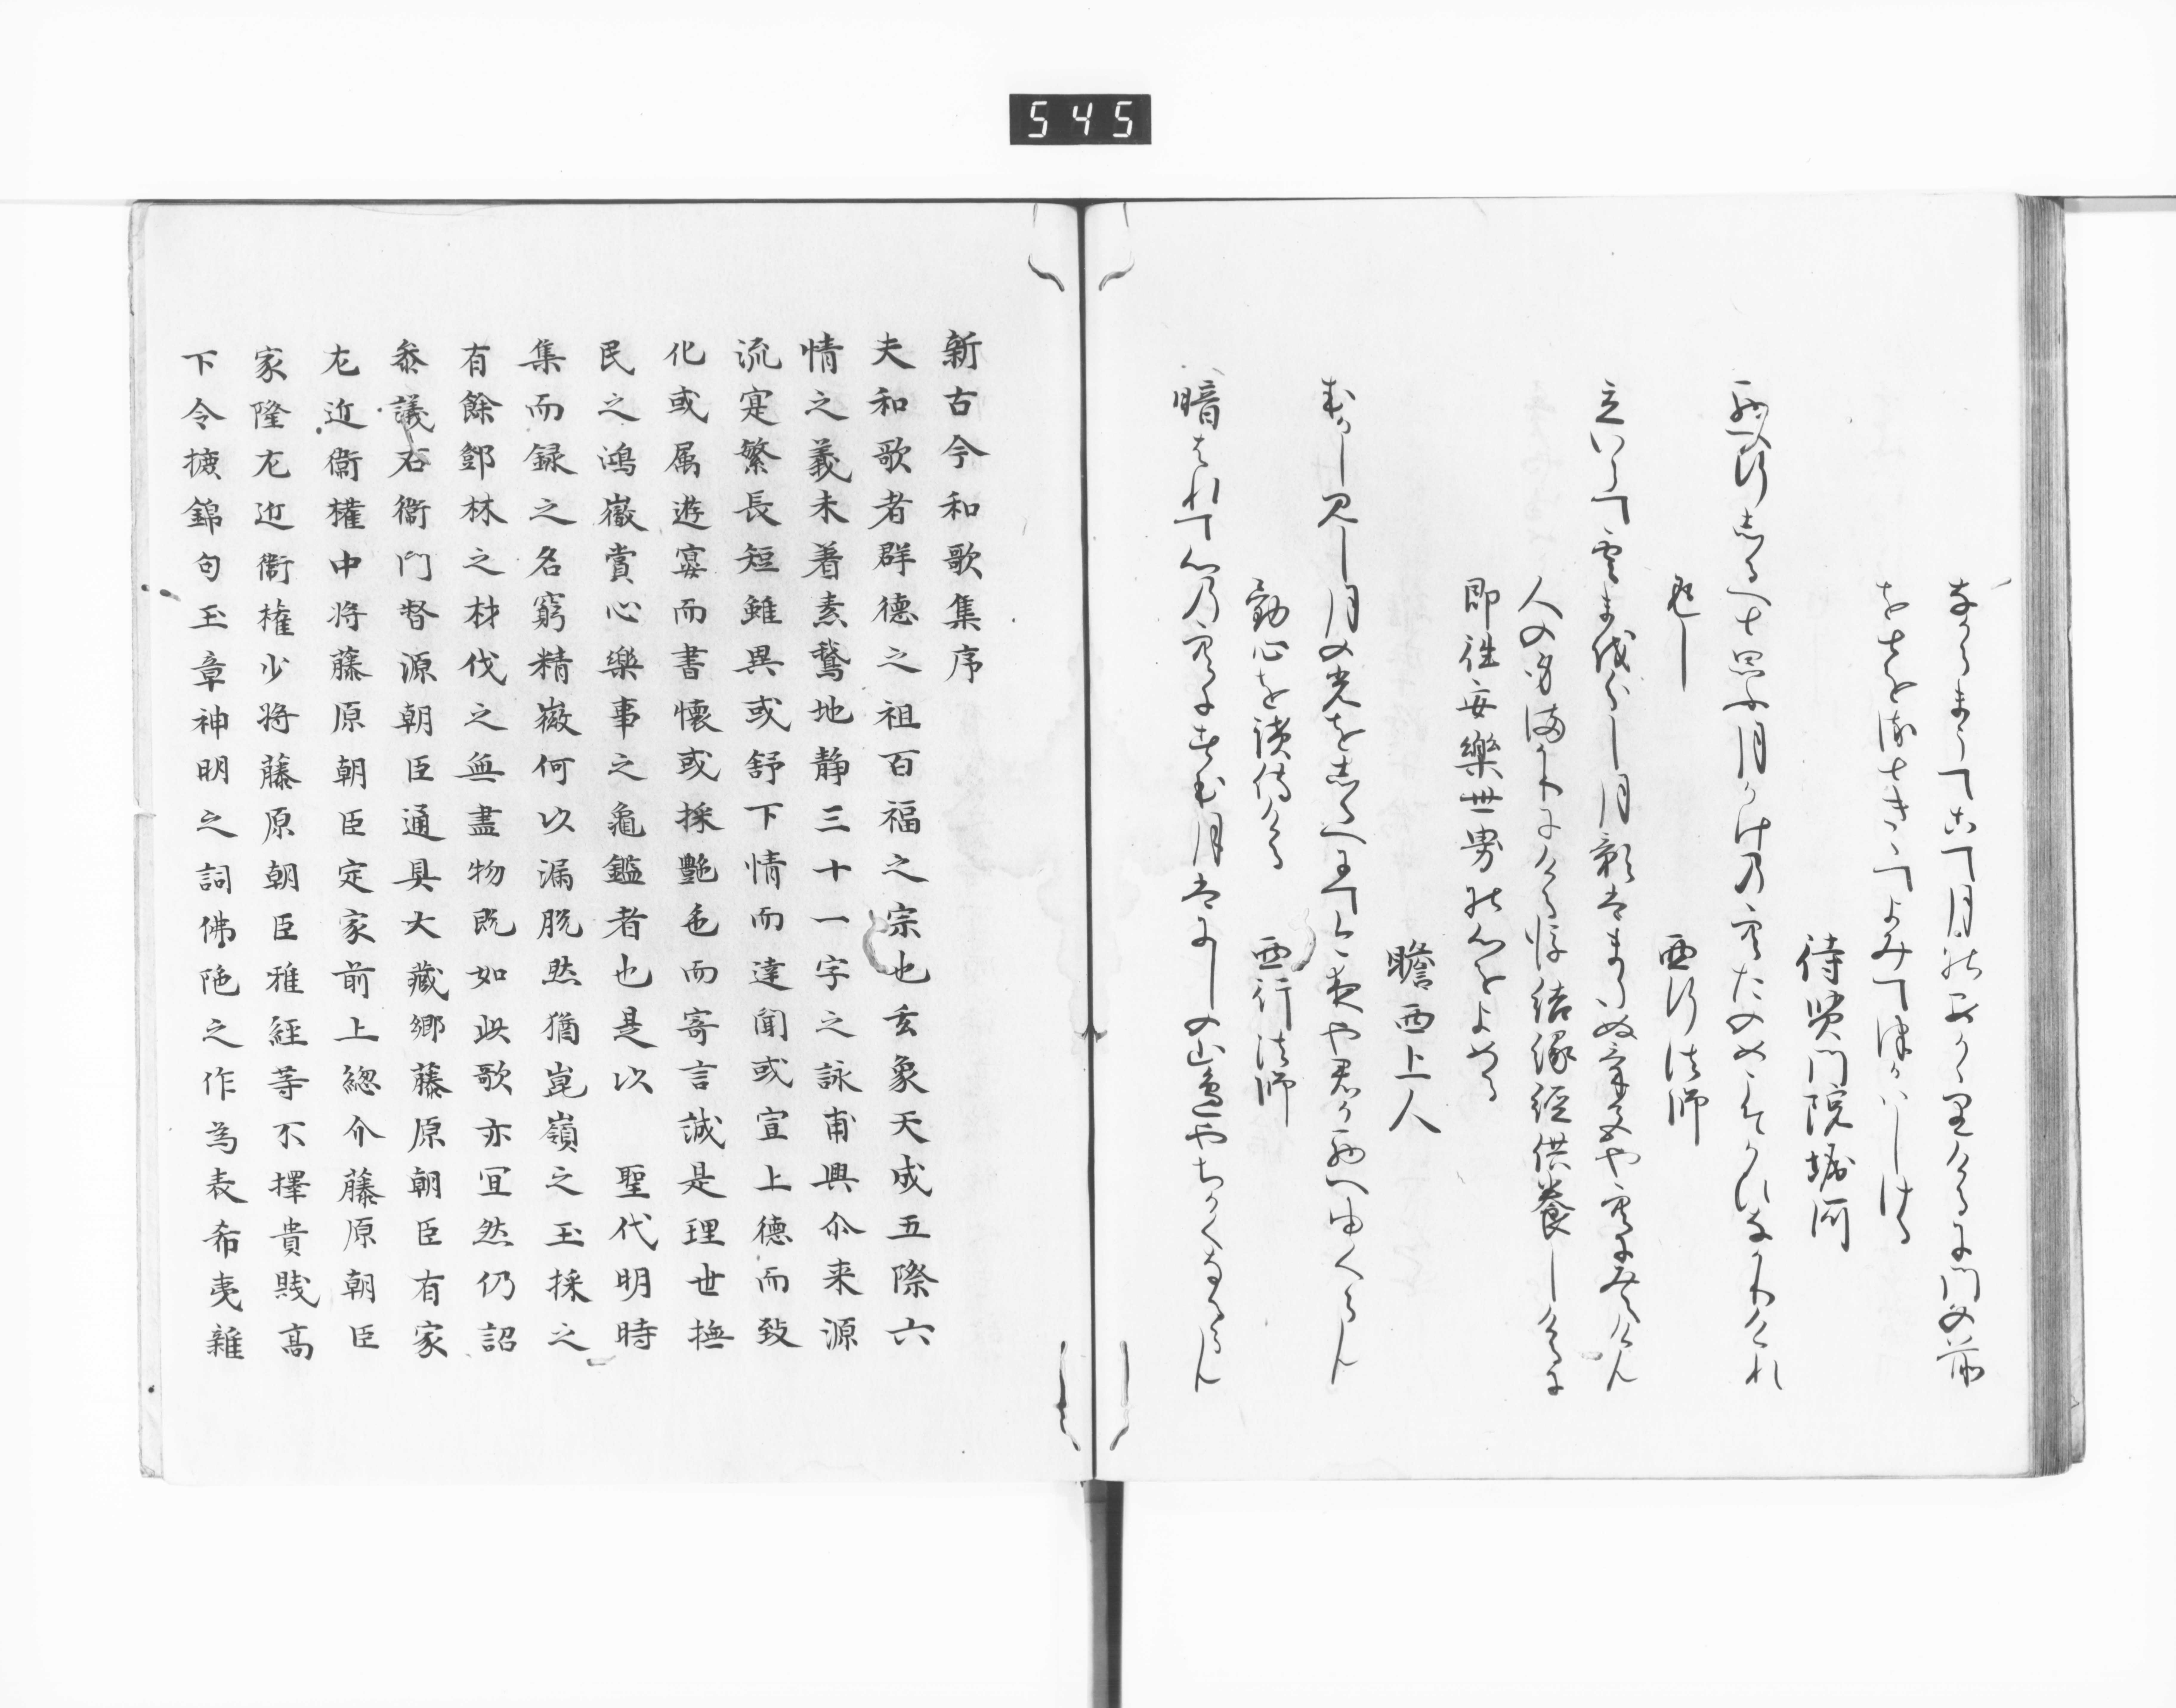 545
なからまうてこて月のあかゝりけるに門の前
をとをるときゝてよみてつかはしける
待賢門院堀河
西へ行しるへと思ふ月かけの空たのめこそかひなかりけれ
返し
西行法師
立いらて雲まを分し月影はまたぬ氣色や空にみえけん
人の身まかりにける後結縁經供養しけるに
即往安樂世界の心をよめる
瞻西上人
むかし見し月の光をしるへにてこよひや君か西へゆくらん
觀心を讀侍ける
西行法師
暗はれて心の空にすむ月はにしの山邊やちかくなるらん
新古今和歌集序
夫和歌者群德之祖百福之宗也玄象天成五際六
情之義未著素鵞地静三十一字之詠甫興尒来源
流寔繁長短雖異或舒下情而達聞或宣上德而致
化或属遊宴而書懐或採艶色而寄言誠是理世撫
民之鴻徽賞心樂事之龜鑑者也是以　聖代明時
集而録之各窮精微何以漏脱然猶崑嶺之玉採之
有餘鄧林之材伐之無盡物既如此歌亦冝然仍詔
叅議右衛門督源朝臣通具大藏卿藤原朝臣有家
左近衛權中将藤原朝臣定家前上総介藤原朝臣
家隆左近衛権少将藤原朝臣雅經等不擇貴賤高
下令摭錦句玉章神明之詞佛陁之作為表希夷雜